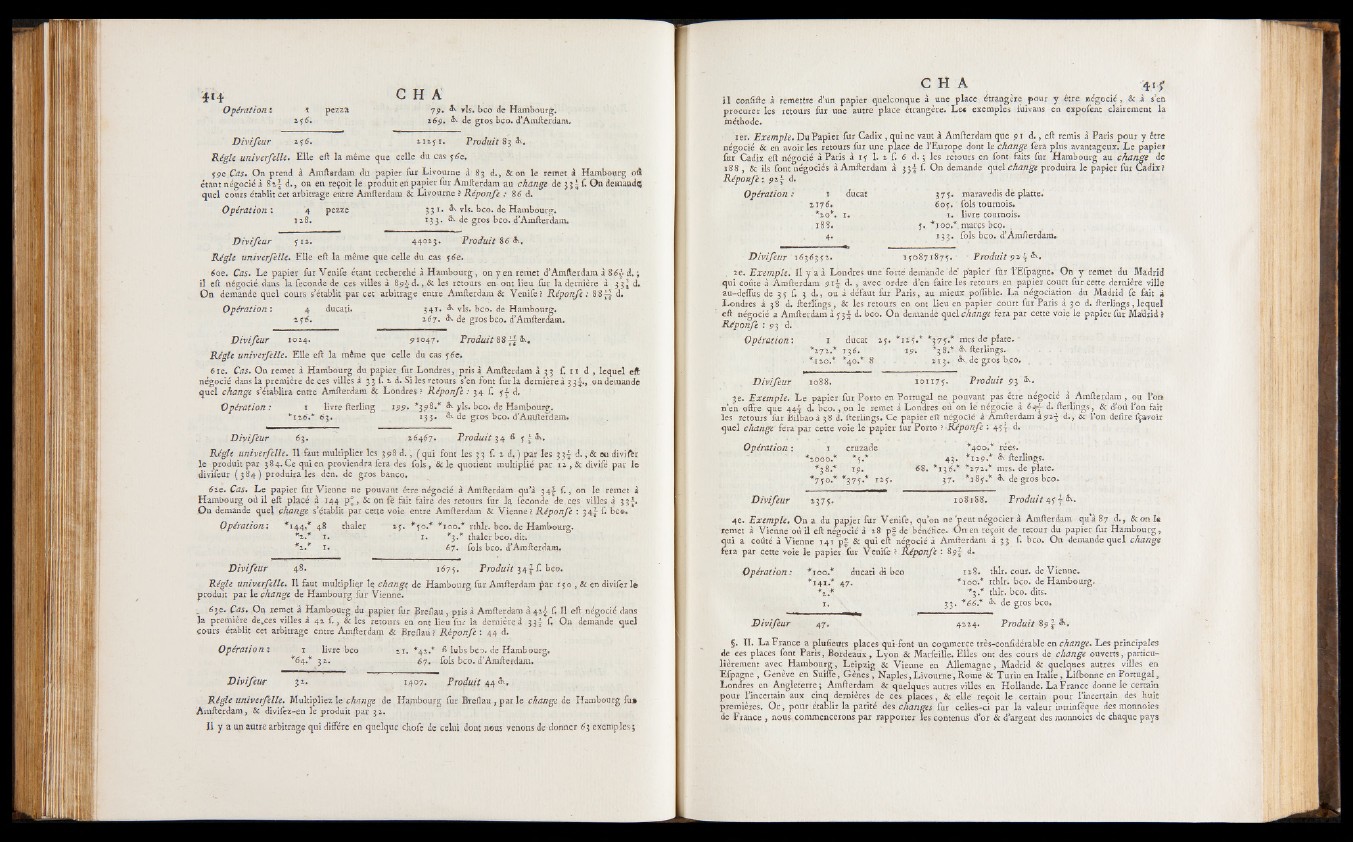 414 C H A
Opération : 1 pezza 79. ₰ vls. bco de Hambourg.
256. 269. ₰ de gros bco. d'Amsterdam.
Diviseur 256. 21251. Produit 83 ₰.
Régle universelle. Elle est la même que celle du cas 56e.
59e Cas. On prend à Amsterdam du papier sur Livourne à 83 d., & on le remet à Hambourg où
étant négocié à 82¾ d., on en reçoit le produit en papier sur Amsterdam au change de 33¼ s. On demande
quel cours établit cet arbitrage entre Amsterdam & Livourne ? Réponse : 86 d.
Opération : 4 pezze 331. ₰ vls. bco. de Hambourg.
128. 133. ₰ de gros bco. d'Amsterdam.
Diviseur 512. 44023. Produit 86 ₰.
Régle universelle. Elle est la même que celle du cas 56e.
60e. Cas. Le papier sur Venise étant recherché à Hambourg, on y en remet d'Amsterdam à 86¼ d. ;
il est négocié dans la seconde de ces villes à 89¼ d., & les retours en ont lieu sur la derniére à 33¼ d.
On demande quel cours s'établit par cet arbitrage entre Amsterdam & Venise ? Réponse : 88 d.
Opération : 4 ducati. 341. ₰ vls. bco. de Hambourg.
256. 267. ₰ de gros bco. d'Amsterdam.
Diviseur 1024. 91047. Produit 88 ₰.
Régle universelle. Elle est la même que celle du cas 56e.
61e. Cas. On remet à Hambourg du papier sur Londres, pris à Amsterdam à 33 s. 11 d, lequel est
négocié dans la premiére de ces villes à 33 s. 2 d. Si les retours s'en font sur la derniére à 33¼, on demande
quel change s'établira entre Amsterdam & Londres ? Réponse : 34 s. 5¼ d.
Opération : 1 livre sterling 199. *398.* ₰ vls. bco. de Hambourg.
*126.* 63. 133. ₰ de gros bco. d'Amsterdam.
Diviseur 63. 26467. Produit 34 ß 5¼ ₰.
Régle universelle. Il faut multiplier les 398 d., (qui font les 33 s. 2 d.) par les 33¼ d., & en diviser
le produit par 384. Ce qui en proviendra sera des sols, & le quotient multiplié par 12, & divisé par le
diviseur (384) produira les den. de gros banco.
62e. Cas. Le papier sur Vienne ne pouvant être négocié à Amsterdam qu'à 34¼ s., on le remet à
Hambourg où il est placé à 144 p°, & on se fait faire des retours sur la seconde de ces villes à 33½.
On demande quel change s'établit par cette voie entre Amsterdam & Vienne : 34¾ s. bco.
Opération : *144.* 48 thaler 25. *50.* *100.* rthlr. bco. de Hambourg.
*2.* 1. 1. *3.* thaler bco. dit.
*2.* 1. 67. sols bco. d'Amsterdam.
Diviseur 48. 1675. Produit 34 s. bco.
Régle universelle. Il faut multiplier le change de Hambourg sur Amsterdam par 150, & en diviser le
produit par le change de Hambourg sur Vienne.
63e. Cas. On remet à Hambourg du papier sur Breslau, pris à Amsterdam à 42¼ s. Il est négocié dans
la premiére de ces villes à 42 s., & les retours en ont lieu sur la derniére à 33½ s. On demande quel
cours établit cet arbitrage entre Amsterdam & Breslau ? Réponse : 44 d.
Opération : 1 livre bco 21. *42.* ß lubs bco. de Hambourg.
*64.* 32. 67. sols bco. d'Amsterdam.
Diviseur 32. 1407. Produit 44 ₰.
Régle universelle. Multipliez le change de Hambourg sur Breslau, par le change de Hambourg sur
Amsterdam, & divisez-en le produit par 32.
Il y a un autre arbitrage qui différe en quelque chose de celui dont nous venons de donner 63 exemples ;
C H A 415
il consiste à remettre d'un papier quelconque à une place étrangère pour y être négocié, & à s'en
procurer les retours sur une autre place étrangère. Les exemples suivans en exposent clairement la
méthode.
1er. Exemple. Du Papier sur Cadix, qui ne vaut à Amsterdam que 91 d., est remis à Paris pour y être
négocié & en avoir les retours sur une place de l'Europe dont le change sera plus avantageux. Le papier
sur Cadix est négocié à Paris à 15 l. 2 s. 6 d. ; les retours en sont faits sur Hambourg au change de
188, & ils sont négociés à Amsterdam à 33¼ s. On demande quel change produira le papier sur Cadix ?
Réponse : 92½ d.
Opération : 1 ducat 375. maravedis de platte.
2176. 605. sols tournois.
*20*. 1. 1. livre tournois.
188. 5. *100.* marcs bco.
4. 133. sols bco. d'Amsterdam.
Diviseur 1636352. 150871875. Produit 92 ₰.
2e. Exemple. Il y a à Londres une forte demande de papier sur l'Espagne. On y remet du Madrid
qui coûte à Amsterdam 91¼ d., avec ordre d'en faire les retours en papier court sur cette derniére ville
au-dessus de 35 s. 3 d., ou à défaut sur Paris, au mieux possible. La négociation du Madrid se fait à
Londres à 38 d. sterlings, & les retours en ont lieu en papier court sur Paris à 30 d. sterlings, lequel
est négocié à Amsterdam à 53¼ d. bco. On demande quel change sera par cette voie le papier sur Madrid ?
Réponse : 93 d.
Opération : 1 ducat 25. *125.* *375.* mrs de plate.
*272.* 136. 19. *38.* ₰ sterlings.
*120.* *40.* 8 213. ₰ de gros bco.
Diviseur 1088. 101175. Produit 93 ₰.
3e. Exemple. Le papier sur Porto en Portugal ne pouvant pas être négocié à Amsterdam, ou l'on
n'en offre que 44¾ d. bco., on le remet à Londres où on le négocie à 64½ d. sterlings, & d'où l'on fait
les retours sur Bilbao à 38 d. sterlings. Ce papier est négocié à Amsterdam à 92½ d., & l'on desire sçavoir
quel change sera par cette voie le papier sur Porto ? Réponse : 45½ d.
Opération : 1 cruzade *400.* rées.
*2000.* *5.* 43. *129.* ₰ sterlings.
*38.* 19. 68. *136.* *272.* mrs. de plate.
*750.* *375.* 125. 37. *185.* ₰ de gros bco.
Diviseur 2375. 108188. Produit 45½ ₰.
4e. Exemple. On a du papier sur Venise, qu'on ne peut négocier à Amsterdam qu'à 87 d., & on le
remet à Vienne où il est négocié à 28 p° de bénéfice. On en reçoit de retour du papier sur Hambourg,
qui a coûté à Vienne 141 p° & qui est négocié à Amsterdam à 33 s. bco. On demande quel change
sera par cette voie le papier sur Venise ? Réponse : 89⅝ d.
Opération : *100.* ducati di bco 128. thlr. cour. de Vienne.
*141.* 47. *100.* rthlr. bco. de Hambourg.
*2.* *3.* thlr. bco. dits.
1. 33. *66.* ₰ de gros bco.
Diviseur 47. 4224. Produit 89⅞ ₰.
§. II. La France a plusieurs places qui font un commerce très-considérable en change. Les principales
de ces places sont Paris, Bordeaux, Lyon & Marseille. Elles ont des cours de change ouverts, particu-
liérement avec Hambourg, Leipzig & Vienne en Allemagne, Madrid & quelques autres villes en
Espagne, Genève en Suisse, Gênes, Naples, Livourne, Rome & Turin en Italie, Lisbonne en Portugal,
Londres en Angleterre ; Amsterdam & quelques autres villes en Hollande. La France donne le certain
pour l'incertain aux cinq derniéres de ces places, & elle reçoit le certain pour l'incertain des huit
premières. Or, pour établir la parité des changes sur celles-ci par la valeur intrinseque des monnoies
de France, nous commencerons par rapporter les contenus d'or & d'argent des monnoies de chaque pays